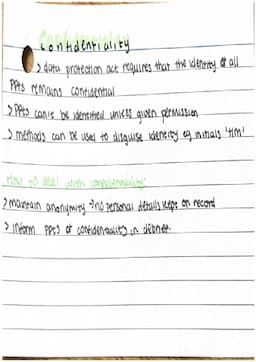 Confidentiality
> data protection act requires that the identity of all
PPTs remains confidential
> PPTs can't be identified unless given permission
> methods can be used to disguise identity eg initials 'tim'
How to deal with confidentiality:
> maintain anonymity → no personal details kept on record
> inform PPTs of confidentiality in debrief.